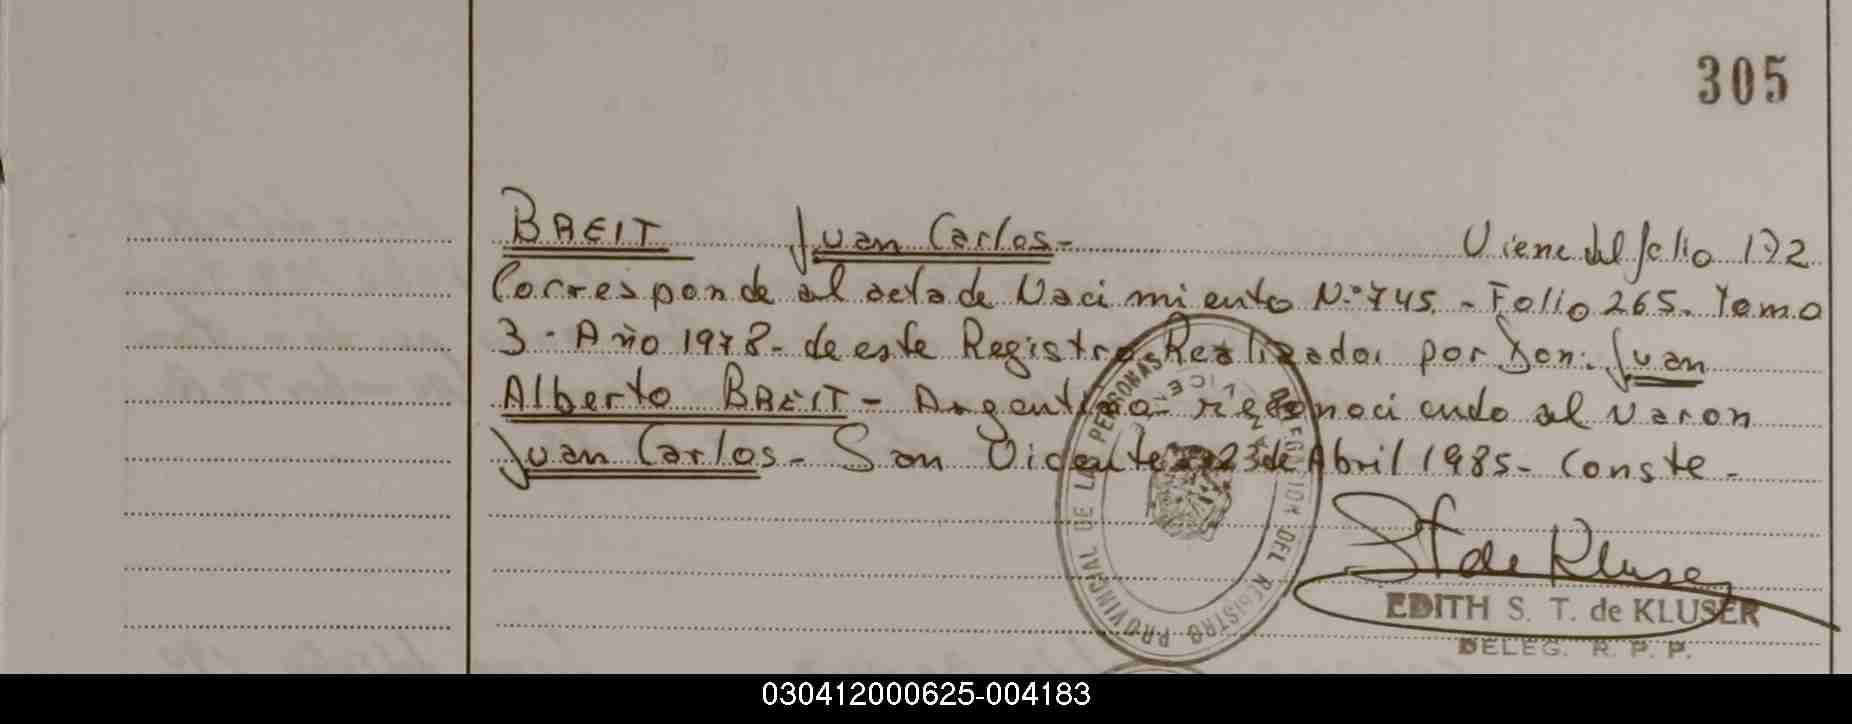 305
BREIT Juan Carlos- Viene del folio 172
Corresponde al acta de Nacimiento N.° 745.- Folio 265. Tomo
3- Año 1978- de este Registro, Realizado, por Don: Juan
Alberto BREIT- Argentino- reconociendo al varon
Juan Carlos- San Vicente 23 de Abril 1985- Conste-
DELEGACION DEL REGISTRO PROVINCIAL DE LAS PERSONAS
ST de Kluser
EDITH S. T. de KLUSER
DELEG. R. P. P.
030412000625-004183